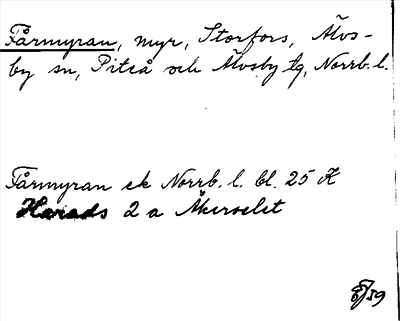 Fårmyran, myr, Storfors, Älvs-
by sn, Piteå och Älvsby tg, Norrb. l.
Fårmyran ek Norrb. l. bl. 25 K
Harads 2 a Åkerselet
/59